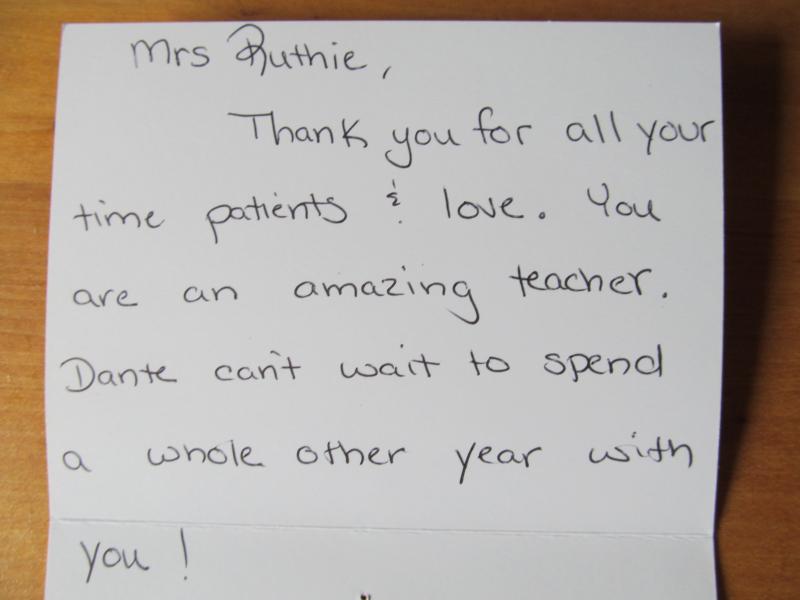 Mrs Ruthie,
Thank you for all your
time patients & love. You
are an amazing teacher.
Dante can't wait to spend
a whole other year with
you!